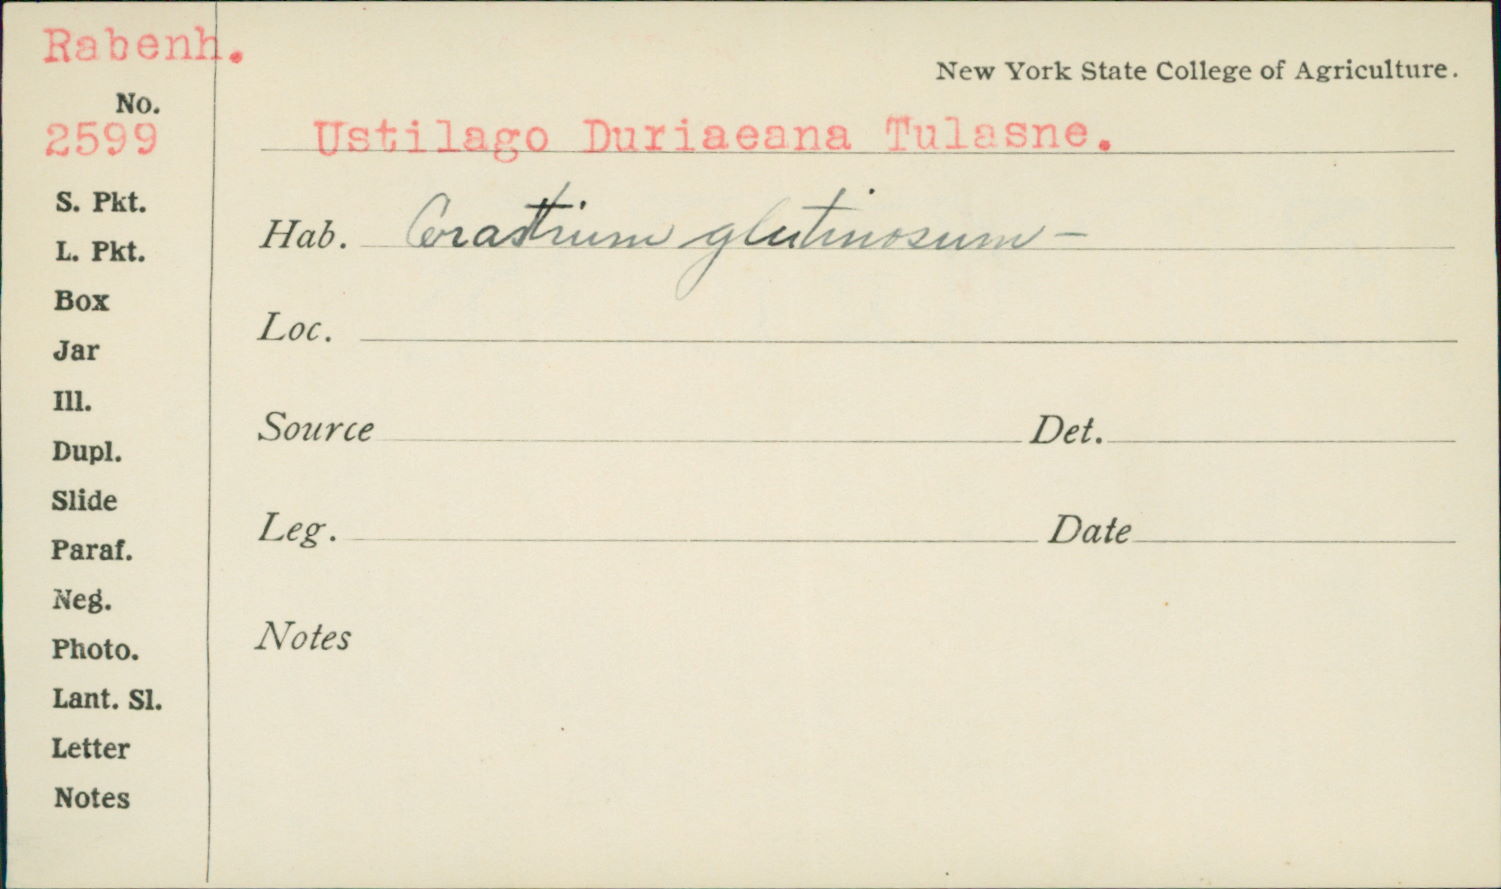 Rabenh.
New York State College of Agriculture.
No.
2599
Ustilago Duriaeana Tulasne.
S. Pkt.
Hab. Cerastium glutinosum –
L. Pkt.
Box
Loc.
Jar
Ill.
Source Det.
Dupl.
Slide
Leg. Date
Paraf.
Neg.
Notes
Photo.
Lant. Sl.
Letter
Notes